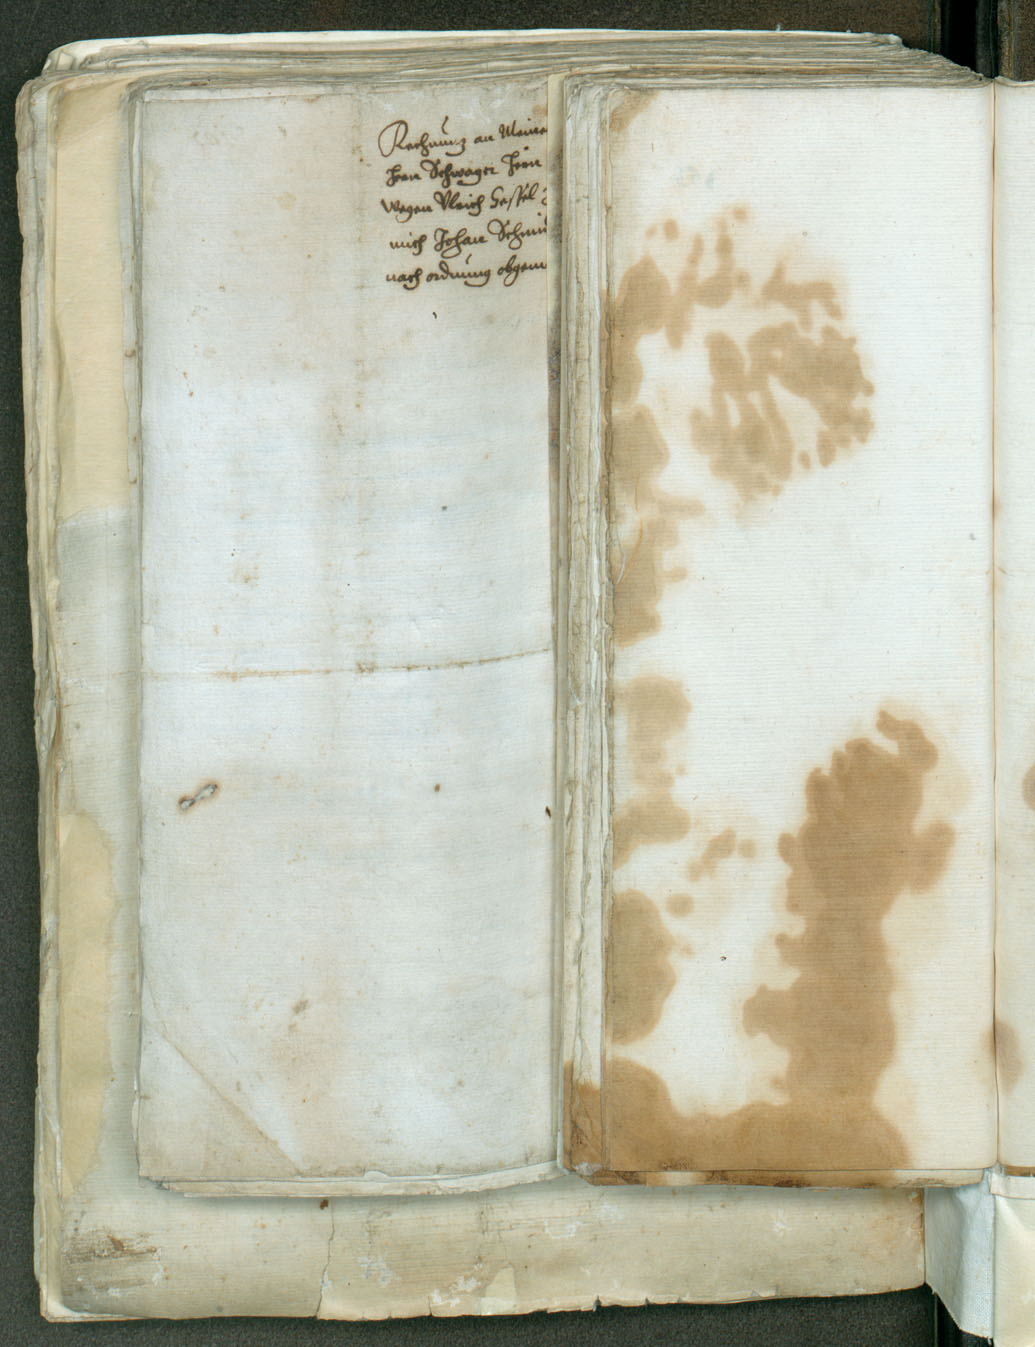 Rechnung an Meine
Hern Schwager Hern
wegen Vlrich Hessel
mich Johan Schmi
nach ordnung obgem